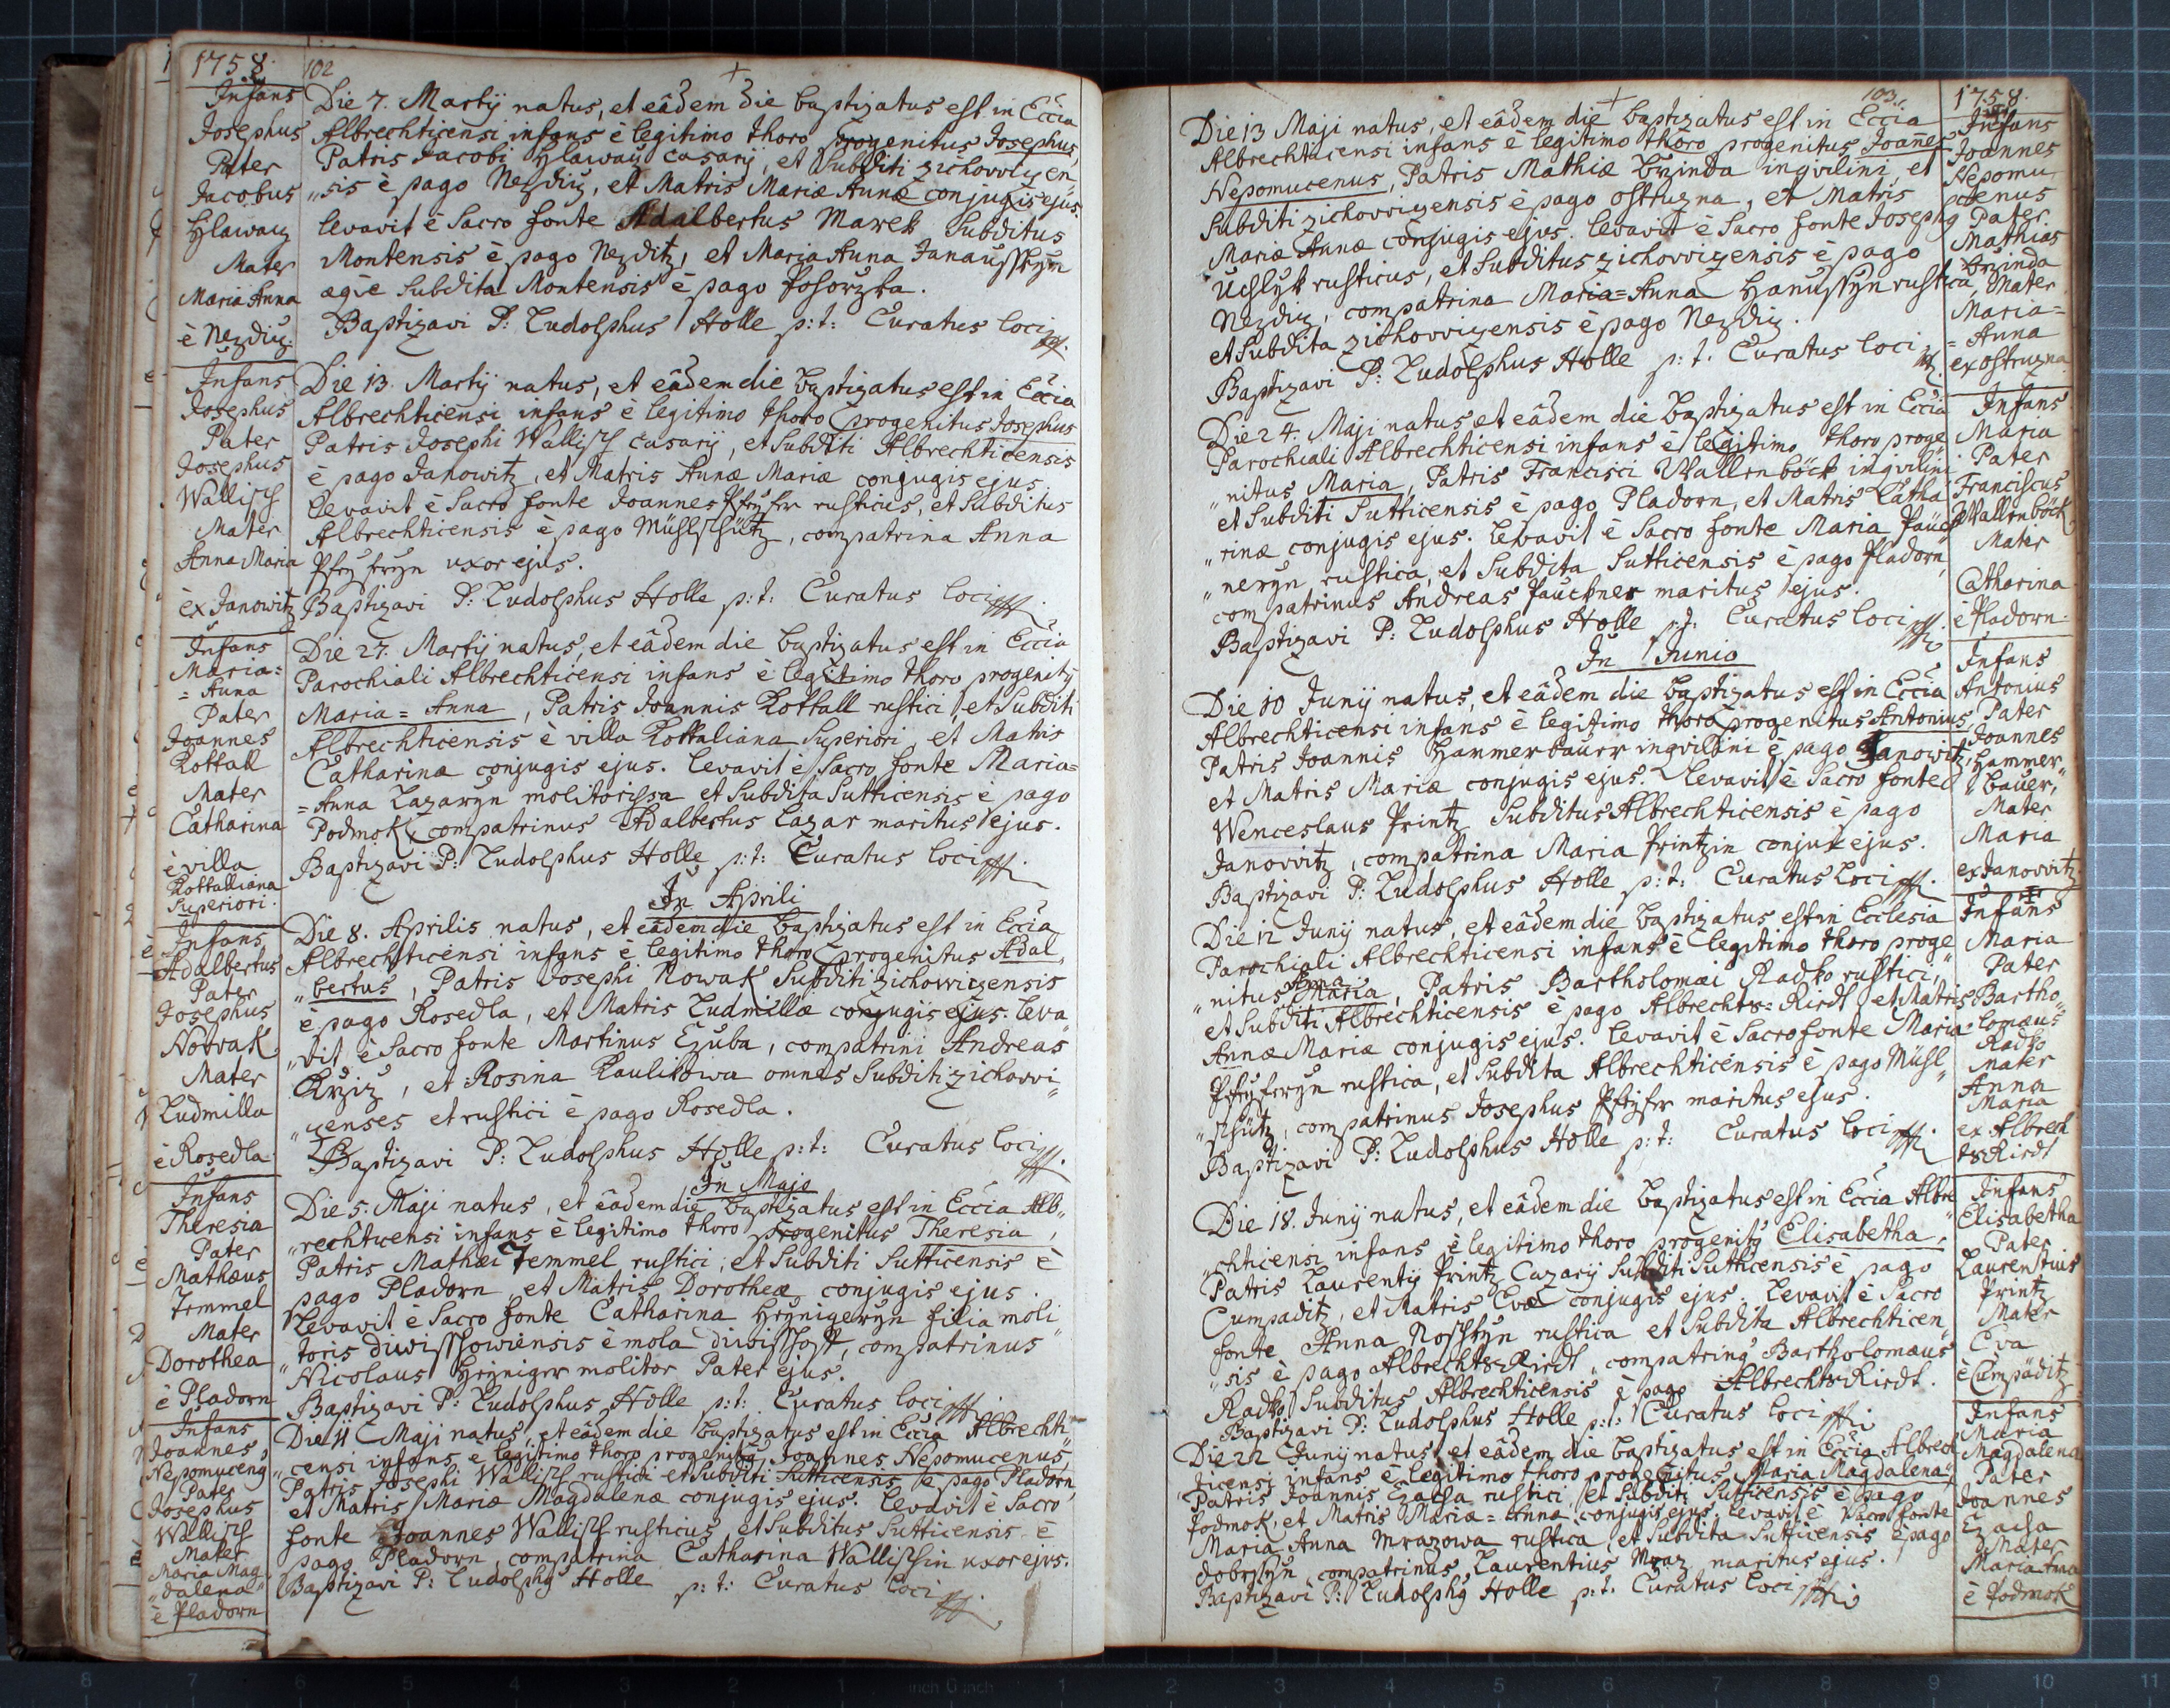 1758.
102
Infans
Josephus
Pater
Jacobus
Hlawacz
Mater
Maria Anna
è Nezdicz.
Die 7. Martij natus, et eâdem die baptizatus est in Eccia
Albrechticensi infans è legitimo thoro progenitus Josephus,
Patris Jacobi Hlawacz casarij, et Subditi zichovicen
"sis è pago Nezdicz, et Matris Mariæ Annæ conjugis ejus.
levavit è Sacro fonte Adalbertus Marek Subditus
Montensis è pago Nezditz, et Maria Anna
Subdita Montensis è pago
Baptizavi P: Ludolphus Holle p: t: Curatus loci
Infans
Josephus
Pater
Josephus
Wallisch
Mater
Anna Maria
ex Janowitz
Die 13. Martij natus, et eâdem die baptizatus est in Eccia
Albrechticensi infans è legitimo thoro progenitus Josephus
Patris Josephi Wallisch casarij, et Subditi Albrechticensis
è pago Janowitz, et Matris Annæ Mariæ conjugis ejus.
levavit è Sacro fonte Joannes rusticus, et Subditus
Albrechticensis è pago Mühlschütz, compatrina Anna
uxor ejus.
Baptizavi P: Ludolphus Holle p: t: Curatus loci
Infans
Maria=
=Anna
Pater
Joannes
Kottall
Mater
Catharina
è villa
Kottalliana
Superiori.
Die 27. Martij natus, et eâdem die baptizatus est in Eccia
Parochiali Albrechticensi infans è legitimo thoro progenitus
Maria=Anna, Patris Joannis Kottall rustici, et Subditi
Albrechticensis è villa Kottaliana Superiori, et Matris
Catharinæ conjugis ejus. levavit è Sacro fonte Maria=
=Anna Lazaryn molitorissa et Subdita Sutticensis è pago
Podmok, compatrinus Adalbertus Lazar maritus ejus.
Baptizavi P: Ludolphus Holle p: t: Curatus loci
In Aprili
Infans
Adalbertus
Pater
Josephus
Nowak
Mater
Ludmilla
è Rosedla
Die 8. Aprilis natus, et eâdem die baptizatus est in Eccia
Albrechticensi infans è legitimo thoro progenitus Adal"
"bertus, Patris Josephi Nowak Subditi zichovicensis
è pago Rosedla, et Matris Ludmillæ conjugis ejus. leva"
"vit è Sacro fonte Martinus Czuba, compatrini Andreas
Krziz, et Rosina Kaulikowa omnes Subditi zichovi"
"censes et rustici è pago Rosedla.
Baptizavi P: Ludolphus Holle p: t: Curatus loci
In Majo
Infans
Theresia
Pater
Mathæus
Temmel
Mater
Dorothea
è Pladorn
Die 5. Maji natus, et eâdem die baptizatus est in Eccia Alb"
"rechticensi infans è legitimo thoro progenitus Theresia,
Patris Mathæi Temmel rustici, et Subditi Sutticensis è
pago Pladorn et Matris Dorotheæ conjugis ejus.
Levavit è Sacro fonte Catharina filia moli"
"toris è mola compatrinus
Nicolaus molitor Pater ejus.
Baptizavi P: Ludolphus Holle p: t: Curatus loci
Infans
Joannes
Nepomucenus
Pater
Josephus
Wallisch
Mater
Maria Mag"
"dalena
è Pladorn
Die 11 Maji natus, et eâdem die baptizatus est in Eccia Albrechti"
"censi infans è legitimo thoro progenitus Joannes Nepomucenus,
Patris Josephi Wallisch rustici et Subditi Sutticensis è pago Pladorn,
et Matris Mariæ Magdalenæ conjugis ejus. levavit è Sacro
fonte Joannes Wallisch rusticus, et Subditus Sutticensis è
pago Pladorn, compatrina Catharina Wallischin uxor ejus.
Baptizavi P: Ludolphus Holle p: t: Curatus loci
103.
1758.
Die 13 Maji natus, et eâdem die baptizatus est in Eccia
Albrechticensi infans è legitimo thoro progenitus Joannes
Nepomucenus, Patris Mathiæ Brzinda inqvilini, et
Subditi zichovicensis è pago Ostruzna, et Matris
Mariæ Annæ conjugis ejus. levavit è Sacro fonte Josephus
rusticus, et Subditus zichovicensis è pago
Nezdicz, compatrina Maria=Anna rustica,
et Subdita zichovicensis è pago Nezdicz.
Baptizavi P: Ludolphus Holle p: t: Curatus loci
Infans
Joannes
Nepomu"
"cenus
Pater
Mathias
Brzinda
Mater
Maria=
=Anna
ex Ostruzna
Die 24. Maji natus, et eâdem die baptizatus est in Eccia
Parochiali Albrechticensi infans è legitimo thoro proge"
"nitus Maria, Patris Francisci Wallenböck inqvilini
et Subditi Sutticensis è pago Pladorn, et Matris Catha"
"rinæ conjugis ejus. levavit è Sacro fonte Maria Pauck"
"neryn rustica, et Subdita Sutticensis è pago Pladorn,
compatrinus Andreas Pauckner maritus ejus.
Baptizavi P: Ludolphus Holle p: t: Curatus loci
Infans
Maria
Pater
Franciscus
Wallenböck
Mater
Catharina
è Pladorn
In Junio
Die 10 Junij natus, et eâdem die baptizatus est in Eccia
Albrechticensi infans è legitimo thoro progenitus Antonius,
Patris Joannis Hammerbauer inqvilini è pago Janowitz,
et Matris Mariæ conjugis ejus. levavit è Sacro fonte
Wenceslaus Printz Subditus Albrechticensis è pago
Janovvitz, compatrina Maria Printzin conjux ejus.
Baptizavi P: Ludolphus Holle p: t: Curatus Loci
Infans
Antonius
Pater
Joannes
Hammer"
"bauer,
Mater
Maria
ex Janovvitz
Die 12 Junij natus, et eâdem die baptizatus est in Ecclesia
Parochiali Albrechticensi infans è legitimo thoro proge"
"nitus Anna Maria, Patris Bartholomæi Radko rustici,
et Subditi Albrechticensis è pago Albrechts=Riedt, et Matris
Annæ Mariæ conjugis ejus. levavit è Sacro fonte Maria
rustica, et Subdita Albrechticensis è pago Mühl"
"schütz, compatrinus Josephus maritus ejus.
Baptizavi P: Ludolphus Holle p: t: Curatus loci
Infans
Maria
Pater
Bartho"
"lomæus
Radko
Mater
Anna
Maria
ex Albrech
ts Riedt
Die 18. Junij natus, et eâdem die baptizatus est in Eccia Albre"
"chticensi infans è legitimo thoro progenitus Elisabetha,
Patris Laurentij Printz Cazarij Subditi Sutticensis è pago
Cumpaditz, et Matris Evæ conjugis ejus. Levavit è Sacro
fonte Anna rustica et Subdita Albrechticen"
"sis è pago Albrechts Riedt, compatrinus Bartholomæus
Radko Subditus Albrechticensis è pago Albrechts Riedt.
Baptizavi P: Ludolphus Holle p: t: Curatus loci
Infans
Elisabetha
Pater
Laurentius
Printz
Mater
Eva
è Cumpaditz
Die 22 Junij natus, et eâdem die baptizatus est in Eccia Albrech
ticensi infans è legitimo thoro progenitus Maria Magdalena,
Patris Joannis rustici, et Subditi Sutticensis è pago
Podmok, et Matris Mariæ=Annæ conjugis ejus. levavit è Sacro fonte
Maria Anna Mrazowa rustica, et Subdita Sutticensis è pago
compatrinus Laurentius Mraz maritus ejus.
Baptizavi P: Ludolphus Holle p: t: Curatus loci
Infans
Maria
Magdalena
Pater
Joannes
Mater
Maria Anna
è Podmok
8 7 6 5 4 3 2 1 inch 0 inch 1 2 3 4 5 6 7 8 9 10 11